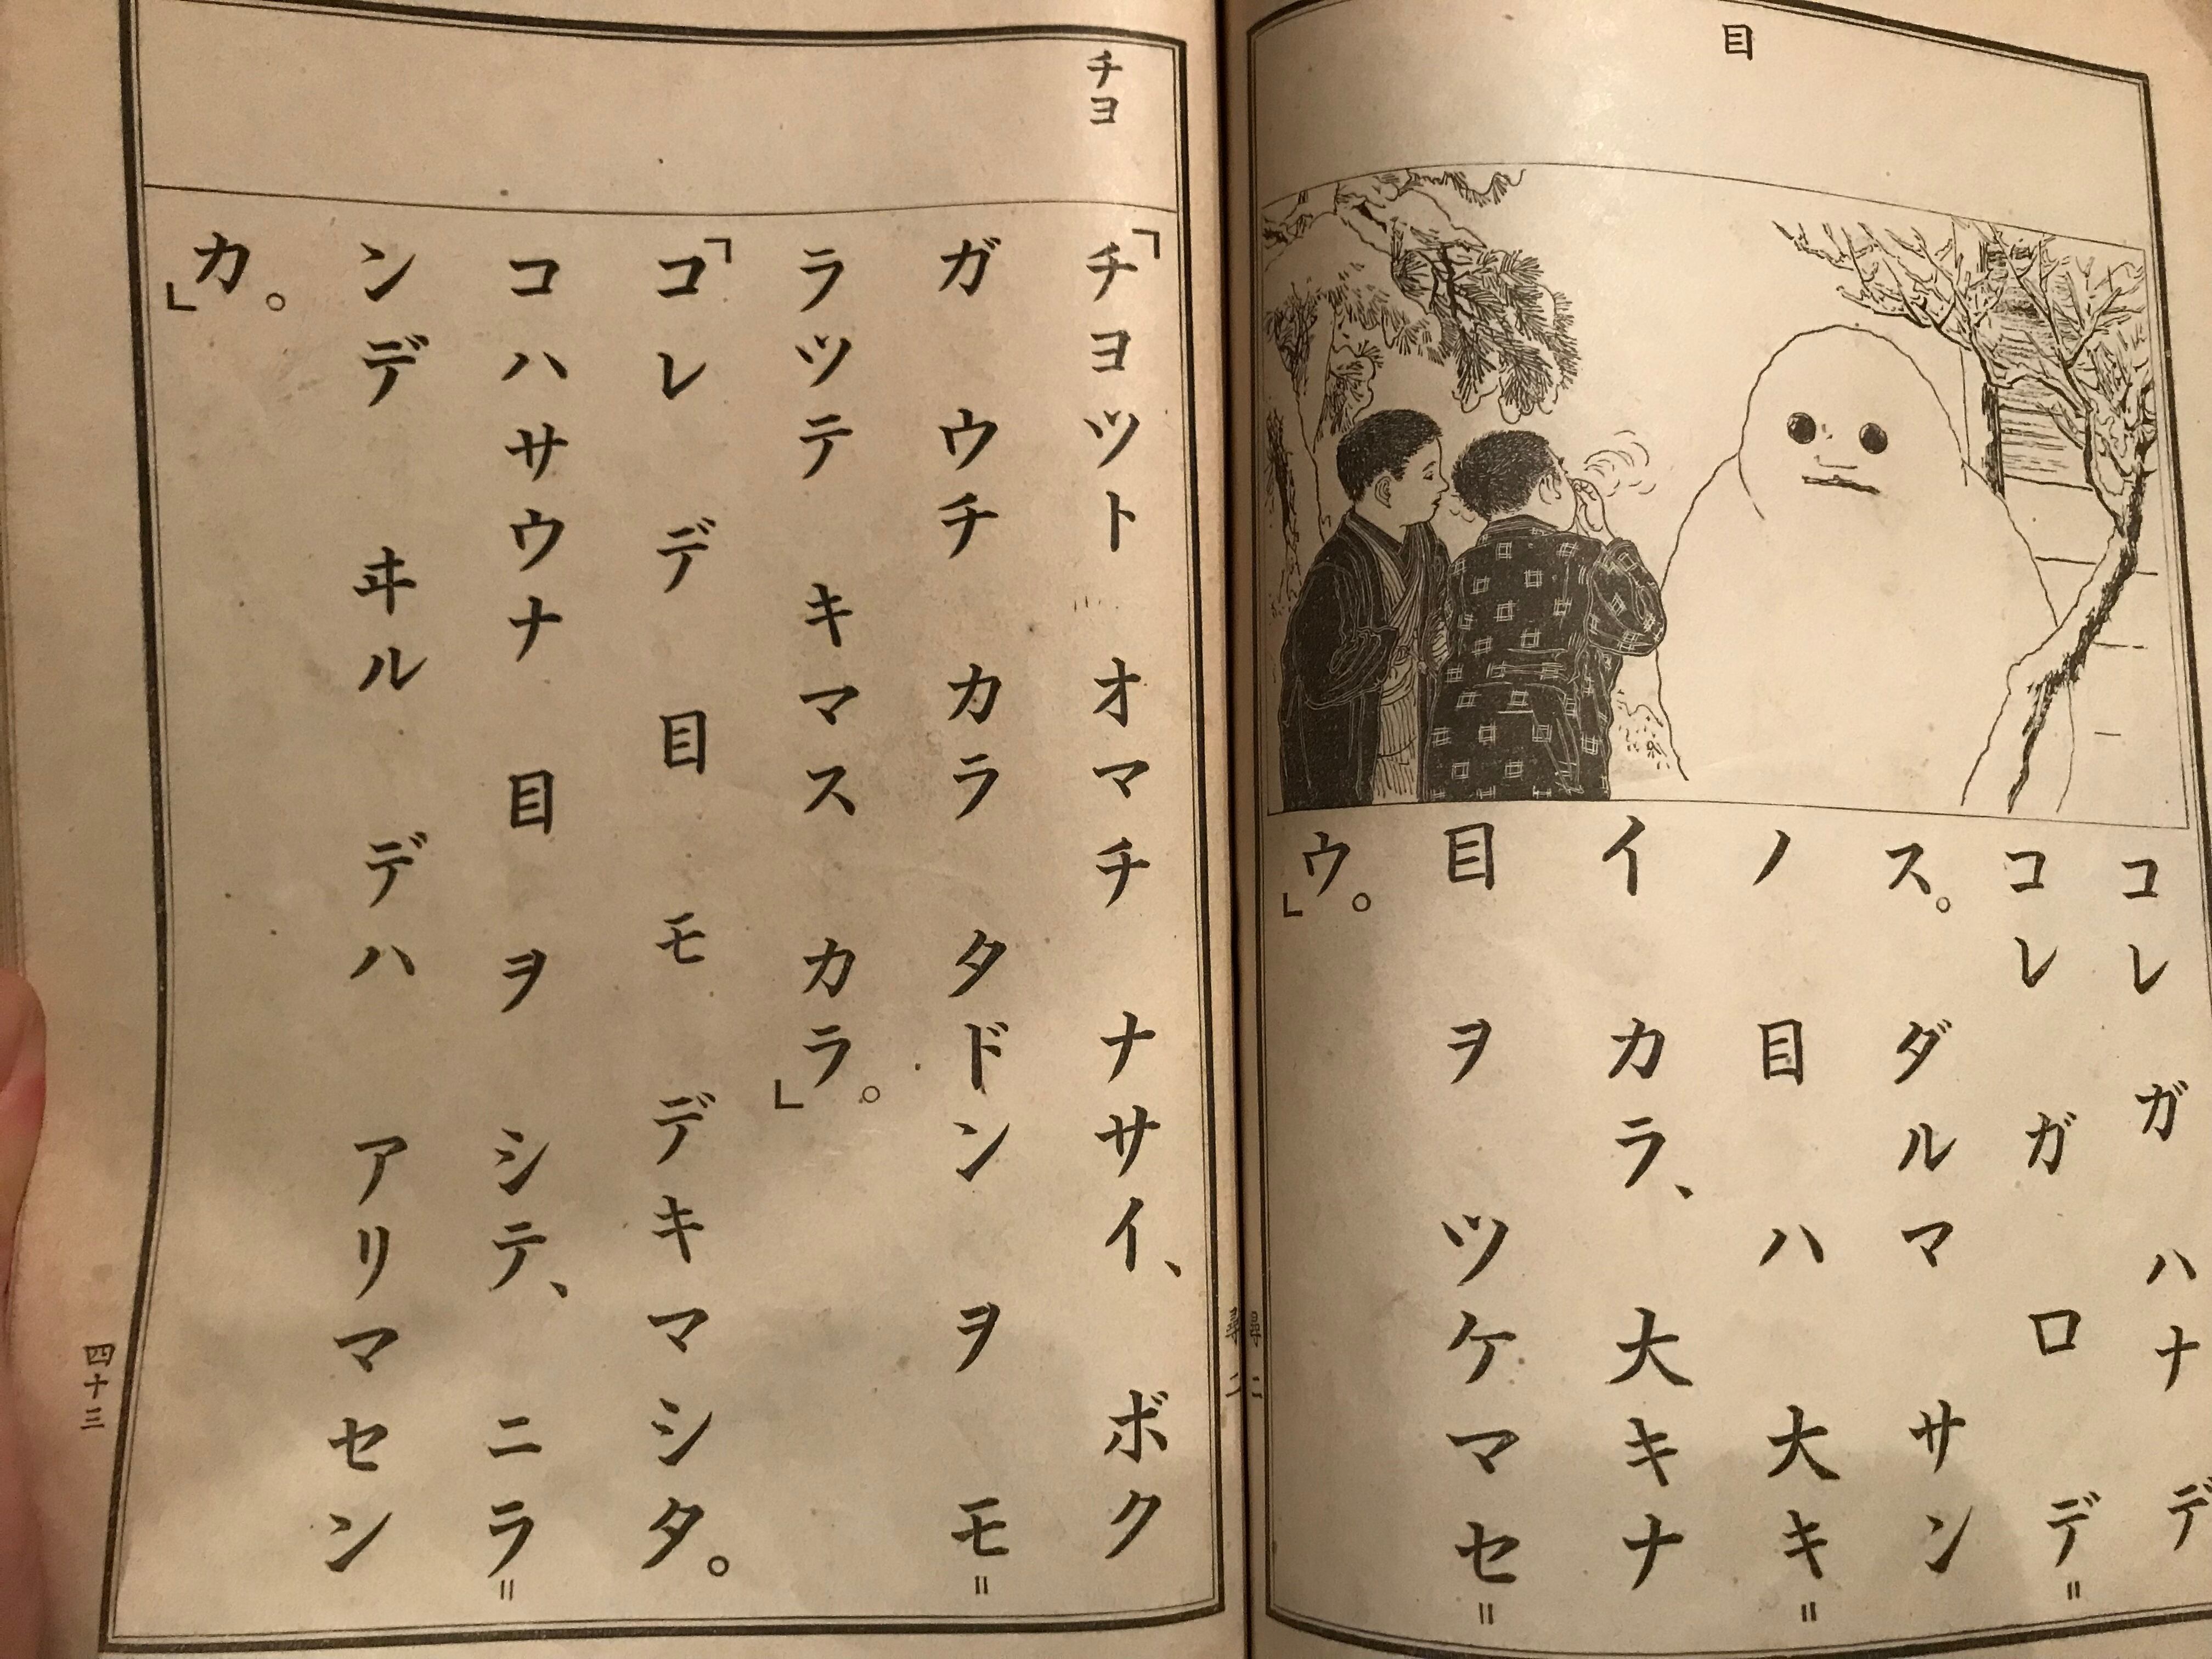 目
コレ ガ ハナ デ
コレ ガ 口 デ=
ス。 ダルマ サン
ノ 目 ハ 大キ=
イ カラ、 大キナ
目 ヲ ツケマセ=
ウ。」
チヨ
「チヨツト オマチ ナサイ、 ボク
ガ ウチ カラ タドン ヲ モ=
ラツテ キマス カラ。」
「コレ デ 目 モ デキマシタ。
コハサウナ 目 ヲ シテ、 ニラ=
ンデ ヰル デハ アリマセン
カ。」
四十三